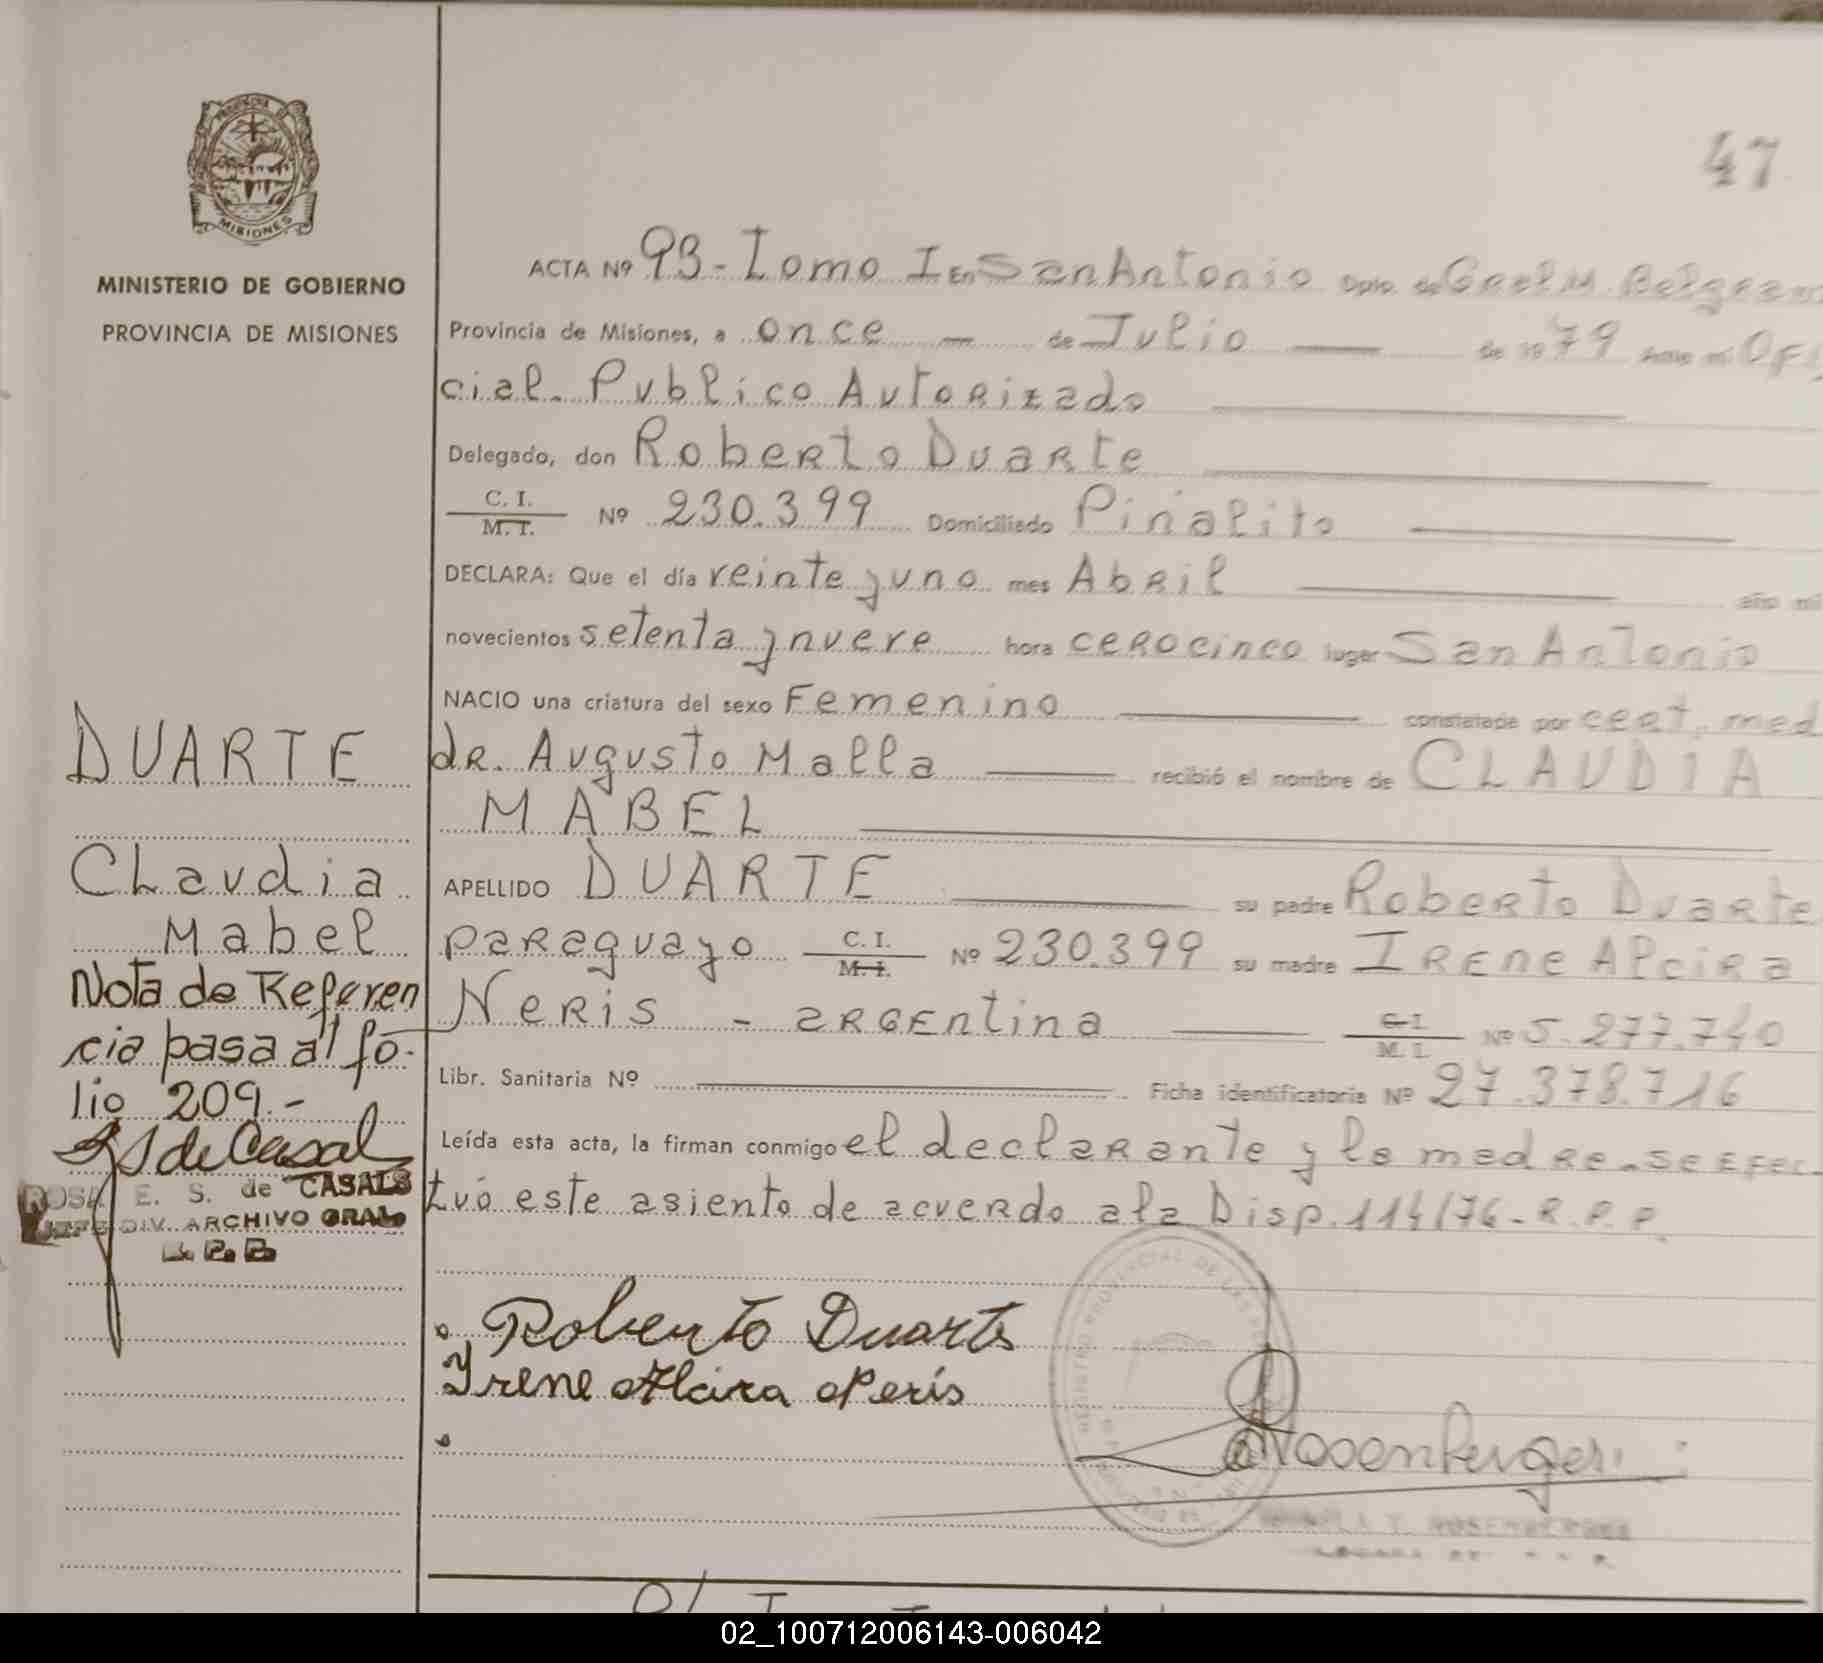 47
PROVINCIA
MISIONES
MINISTERIO DE GOBIERNO
PROVINCIA DE MISIONES
ACTA Nº 93-Tomo I En San Antonio Dpto. de Gral M. Belgrano
Provincia de Misiones, a once — de Julio — de 1979 Ante mí Ofi
cial. Publico Autorizado
Delegado, don Roberto Duarte
C. I.
M. I. Nº 230.399 Domiciliado Piñalito
DECLARA: Que el día veinte y uno mes Abril año mil
novecientos setenta y nueve hora cero cinco lugar San Antonio
NACIO una criatura del sexo Femenino constatada por cert. med
dr. Augusto Malla recibió el nombre de CLAUDIA
MABEL
APELLIDO DUARTE su padre Roberto Duarte
paraguayo C. I.
M. I. Nº 230.399 su madre Irene Alcira
Neris - argentina C I
M. I. Nº 5.277.740
Libr. Sanitaria Nº Ficha identificatoria Nº 27.378.716
Leída esta acta, la firman conmigo el declarante y la madre. se efec-
tuó este asiento de acuerdo a la Disp. 114/76 - R.P.P.
DUARTE
Claudia
Mabel
Nota de Referen
cia pasa al fo-
lio 209.-
S de Casal
ROSA E. S. de CASALS
JEFE DIV. ARCHIVO GRAL
Roberto Duarte
Yrene Alcira Neris
Rosenberger
02_100712006143-006042